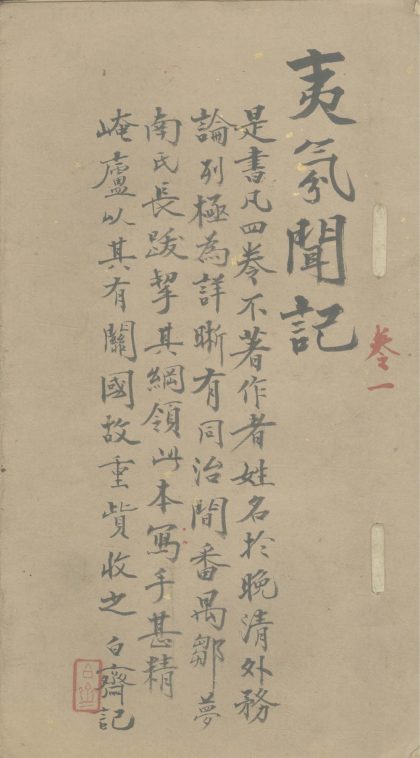 夷氛聞記
卷一
是書凡四卷不著作者姓名於晚清外務
論列極為詳晰有同治間番禺鄒夢
南氏長跋挈其綱領此本寫手甚精
崦廬以其有關國故重貲收之 白齋記